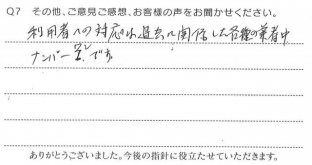 Q7 その他、ご意見ご感想、お客様の声をお聞かせください。
利用者への対応は過去に関係した各種の業者中
ナンバー1です
ありがとうございました。今後の指針に役立たせていただきます。